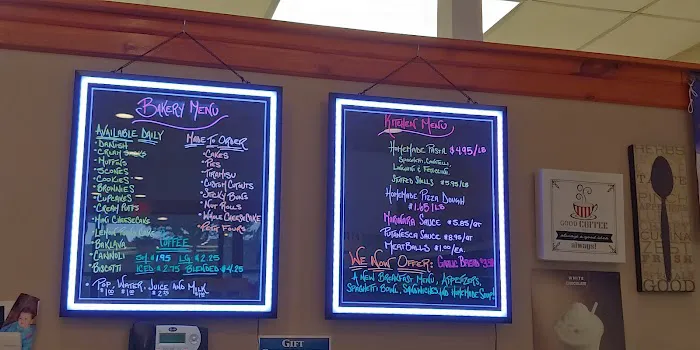 Bakery Menu
Available Daily
- Danish
- Cream Sticks
- Muffins
- Scones
- Cookies
- Brownies
- Cupcakes
- Cream Puffs
- Mini Cheesecake
- Lemon
- Baklava
- Cannoli
- Biscotti
Made To Order
- Cakes
- Pies
- Tiramisu
- Custom
- Sticky Buns
- Nut Rolls
- Whole Cheesecake
- Petit Fours
Coffee
SM $1.95 LG. $2.25
Iced $2.75 Blended $4.25
- Pop, Water, Juice and Milk
Kitchen Menu
Homemade Pasta $4.95/LB
Spaghetti, Cavatelli,
Linguini & Fettuccine
Stuffed Shells $5.95/LB
Homemade Pizza Dough
$1.65/LB
Marinara Sauce $5.85/QT
Puttanesca Sauce $8.95/QT
Meatballs $1.00/EA.
We Now Offer: Garlic Bread
A New Breakfast Menu, Appetizers,
Spaghetti Bowl, Sandwiches and Homemade Soup!
GOOD COFFEE
always!
HERBS
FRESH
GOOD
WHITE
CHOCOLATE
GIFT